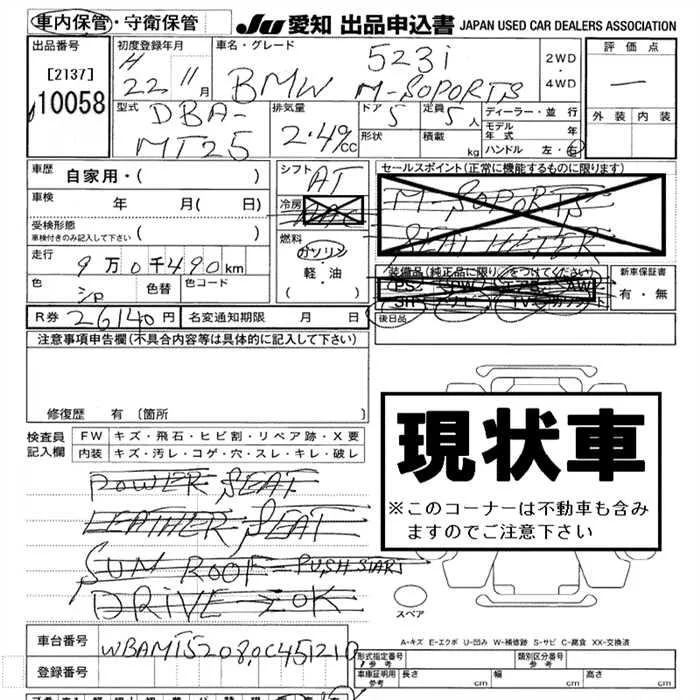 車内保管・守衛保管
JU 愛知 出品申込書 JAPAN USED CAR DEALERS ASSOCIATION
出品番号
[2137]
10058
初度登録年月
H
22 11月
車名・グレード
523i
BMW M-SOPORTS
2WD
・
4WD
評価点
ー
外装 内装
型式
DBA-
MT25
排気量
2.49cc
ドア 5
形状
定員 5人
積載 kg
ディーラー・並行
モデル年式 年
ハンドル 左・右
車歴
自家用・( )
車検
年 月( 日)
受検形態
(車検付きのみ記入して下さい)
( )
走行
9万0千490km
色
シP
色替
色コード
R券 26140円
名変通知期限 月 日
シフト
AT
冷房
燃料
ガソリン
・
軽・油
( )
セールスポイント(正常に機能するものに限ります)
M-SOPORTS
SEAT HETER
装備品(純正品に限り○をつけてください)
PS PW エアB AW
SR ナビ TV
新車保証書
有・無
後日品
注意事項申告欄(不具合内容等は具体的に記入して下さい)
修復歴 有 〔箇所 〕
検査員
記入欄
FW キズ・飛石・ヒビ割・リペア跡・X要
内装 キズ・汚レ・コゲ・穴・スレ・キレ・破レ
POWER SEAT
LEATHER SEAT
SUN ROOF- PUSH START
DRIVE = OK
現状車
※このコーナーは不動車も含み
ますのでご注意下さい
スペア
A-キズ E-エクボ U-凹み W-補修跡 S-サビ C-腐食 XX-交換済
車台番号
WBAMT52080C451210
登録番号
形式指定番号
参考
類別区分番号
車庫証明用
参考
長さ cm
幅 cm
高さ cm